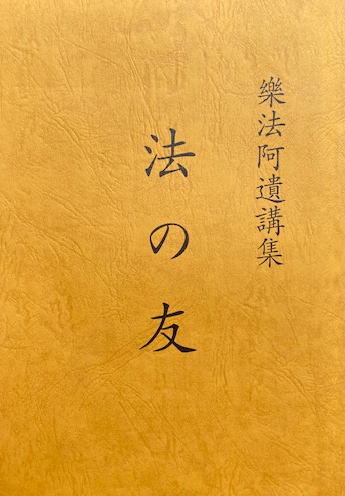 樂法阿遺講集
法の友